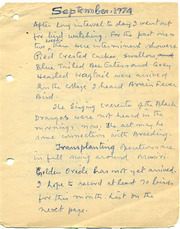 September-1974
After long interval to day I went out
for bird watching. For the past one or
two, there were intermittent showers
Red Crested Cuckoo Swallows
Blue Tailed Bee Eaters and Grey
Headed Wagtail were arrived
While College I heard Brain Fever
Bird.
The Singing exercise of the Black
Drongos were not heard in the
mornings now. The act may be
some connection with Breeding.
Transplanting operations are
in full swing around
Golden Oriole has not yet arrived.
I hope to record at least 70 birds
for this month. List on the
next page.